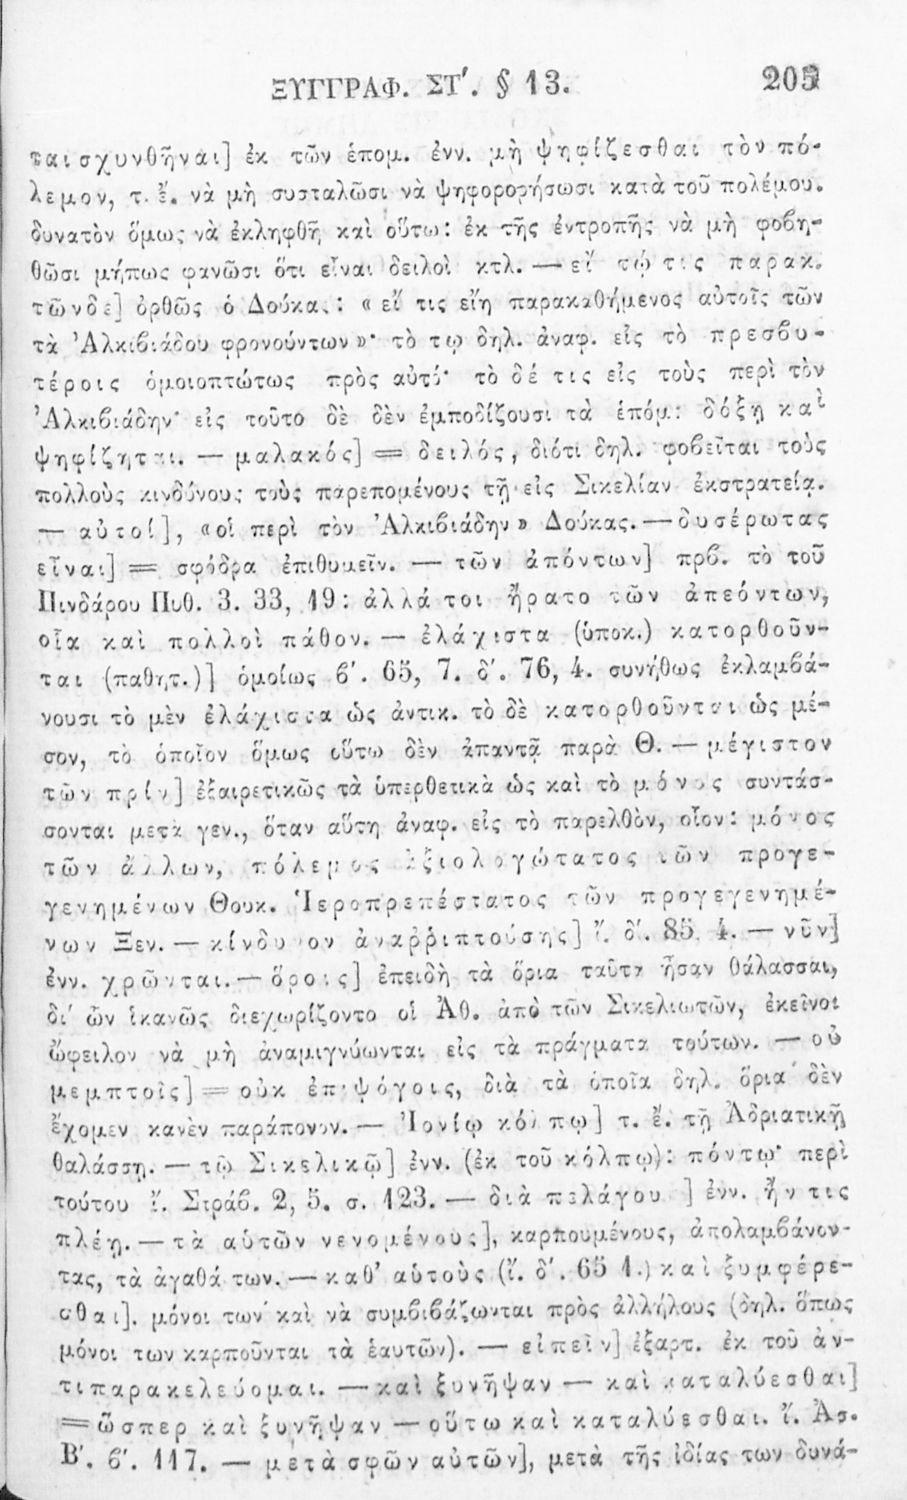 ΞΥΓΓΡΑΦ. ΣΤ'. § 13. 205
ταισχυνθῆναι] ἐκ τῶν ἑπομ. ἐνν. μὴ ψηφίζεσθαι τὸν πό-
λεμον, τ. ἔ. νὰ μὴ συσταλῶσι νὰ ψηφοροφήσωσι κατὰ τοῦ πολέμου.
δυνατὸν ὅμως νὰ ἐκληφθῇ καὶ οὕτω: ἐκ τῆς ἐντροπῆς νὰ μὴ φοβη-
θῶσι μήπως φανῶσι ὅτι εἶναι δειλοὶ κτλ. — εἴ τῴ τις παρακ.
τῶνδε] ὀρθῶς ὁ Δούκας: « εἴ τις εἴη παρακαθήμενος αὐτοῖς τῶν
τὰ Ἀλκιβιάδου φρονούντων »· τὸ τῳ δηλ. ἀναφ. εἰς τὸ πρεσβυ-
τέροις ὁμοιοπτώτως πρὸς αὐτό· τὸ δέ τις εἰς τοὺς περὶ τὸν
Ἀλκιβιάδην· εἰς τοῦτο δὲ δὲν ἐμποδίζουσι τὰ ἑπόμ: δόξῃ καὶ
ψηφίζηται. — μαλακός] = δειλός, διότι δηλ. φοβεῖται τοὺς
πολλοὺς κινδύνους τοὺς παρεπομένους τῇ εἰς Σικελίαν ἐκστρατείᾳ.
— αὐτοί], «οἱ περὶ τὸν Ἀλκιβιάδην» Δούκας. — δυσέρωτας
εἶναι] = σφόδρα ἐπιθυμεῖν. — τῶν ἀπόντων] πρβ. τὸ τοῦ
Πινδάρου Πυθ. 3. 33, 19: ἀλλά τοι ἤρατο τῶν ἀπεόντων,
οἷα καὶ πολλοὶ πάθον. — ἐλάχιστα (ὑποκ.) κατορθοῦν-
ται (παθητ.)] ὁμοίως β'. 65, 7. δ'. 76, 4. συνήθως ἐκλαμβά-
νουσι τὸ μὲν ἐλάχιστα ὡς ἀντικ. τὸ δὲ κατορθοῦνται ὡς μέ-
σον, τὸ ὁποῖον ὅμως οὕτω δὲν ἀπαντᾷ παρὰ Θ. — μέγιστον
τῶν πρίν] ἐξαιρετικῶς τὰ ὑπερθετικὰ ὡς καὶ τὸ μόνος συντάσ-
σονται μετὰ γεν., ὅταν αὕτη ἀναφ. εἰς τὸ παρελθὸν, οἷον: μόνος
τῶν ἄλλων, πόλεμος ἀξιολογώτατος τῶν προγε-
γενημένων Θουκ. Ἱεροπρεπέστατος τῶν προγεγενημέ-
νων Ξεν. — κίνδυνον ἀναῤῥιπτούσης] ἴ. δ'. 85, 4. — νῦν]
ἐνν. χρῶνται. — ὅροις] ἐπειδὴ τὰ ὅρια ταῦτα ἦσαν θάλασσαι,
δι' ὧν ἱκανῶς διεχωρίζοντο οἱ Ἀθ. ἀπὸ τῶν Σικελιωτῶν, ἐκεῖνοι
ὤφειλον νὰ μὴ ἀναμιγνύωνται εἰς τὰ πράγματα τούτων. — οὐ
μεμπτοῖς] = οὐκ ἐπιψόγοις, διὰ τὰ ὁποῖα δηλ. ὅρια δὲν
ἔχομεν κανὲν παράπονον. — Ἰονίῳ κόλπῳ] τ. ἔ. τῇ Ἀδριατικῇ
θαλάσσῃ. — τῷ Σικελικῷ] ἐνν. (ἐκ τοῦ κόλπῳ): πόντῳ· περὶ
τούτου ἴ. Στράβ. 2, 5. σ. 123. — διὰ πελάγους] ἐνν. ἤν τις
πλέῃ. — τὰ αὑτῶν νενομένους], καρπουμένους, ἀπολαμβάνον-
τας, τὰ ἀγαθά των. — καθ' αὑτοὺς (ἴ. δ'. 65 1.) καὶ ξυμφέρε-
σθαι]. μόνοι των καὶ νὰ συμβιβάζωνται πρὸς ἀλλήλους (δηλ. ὅπως
μόνοι των καρποῦνται τὰ ἑαυτῶν). — εἰπεῖν] ἐξαρτ. ἐκ τοῦ ἀν-
τιπαρακελεύομαι. — καὶ ξυνῆψαν — καὶ καταλύεσθαι]
= ὥσπερ καὶ ξυνῆψαν — οὕτω καὶ καταλύεσθαι. ἴ. Ἀσ.
Β'. 6'. 117. — μετὰ σφῶν αὐτῶν], μετὰ τῆς ἰδίας των δυνά-